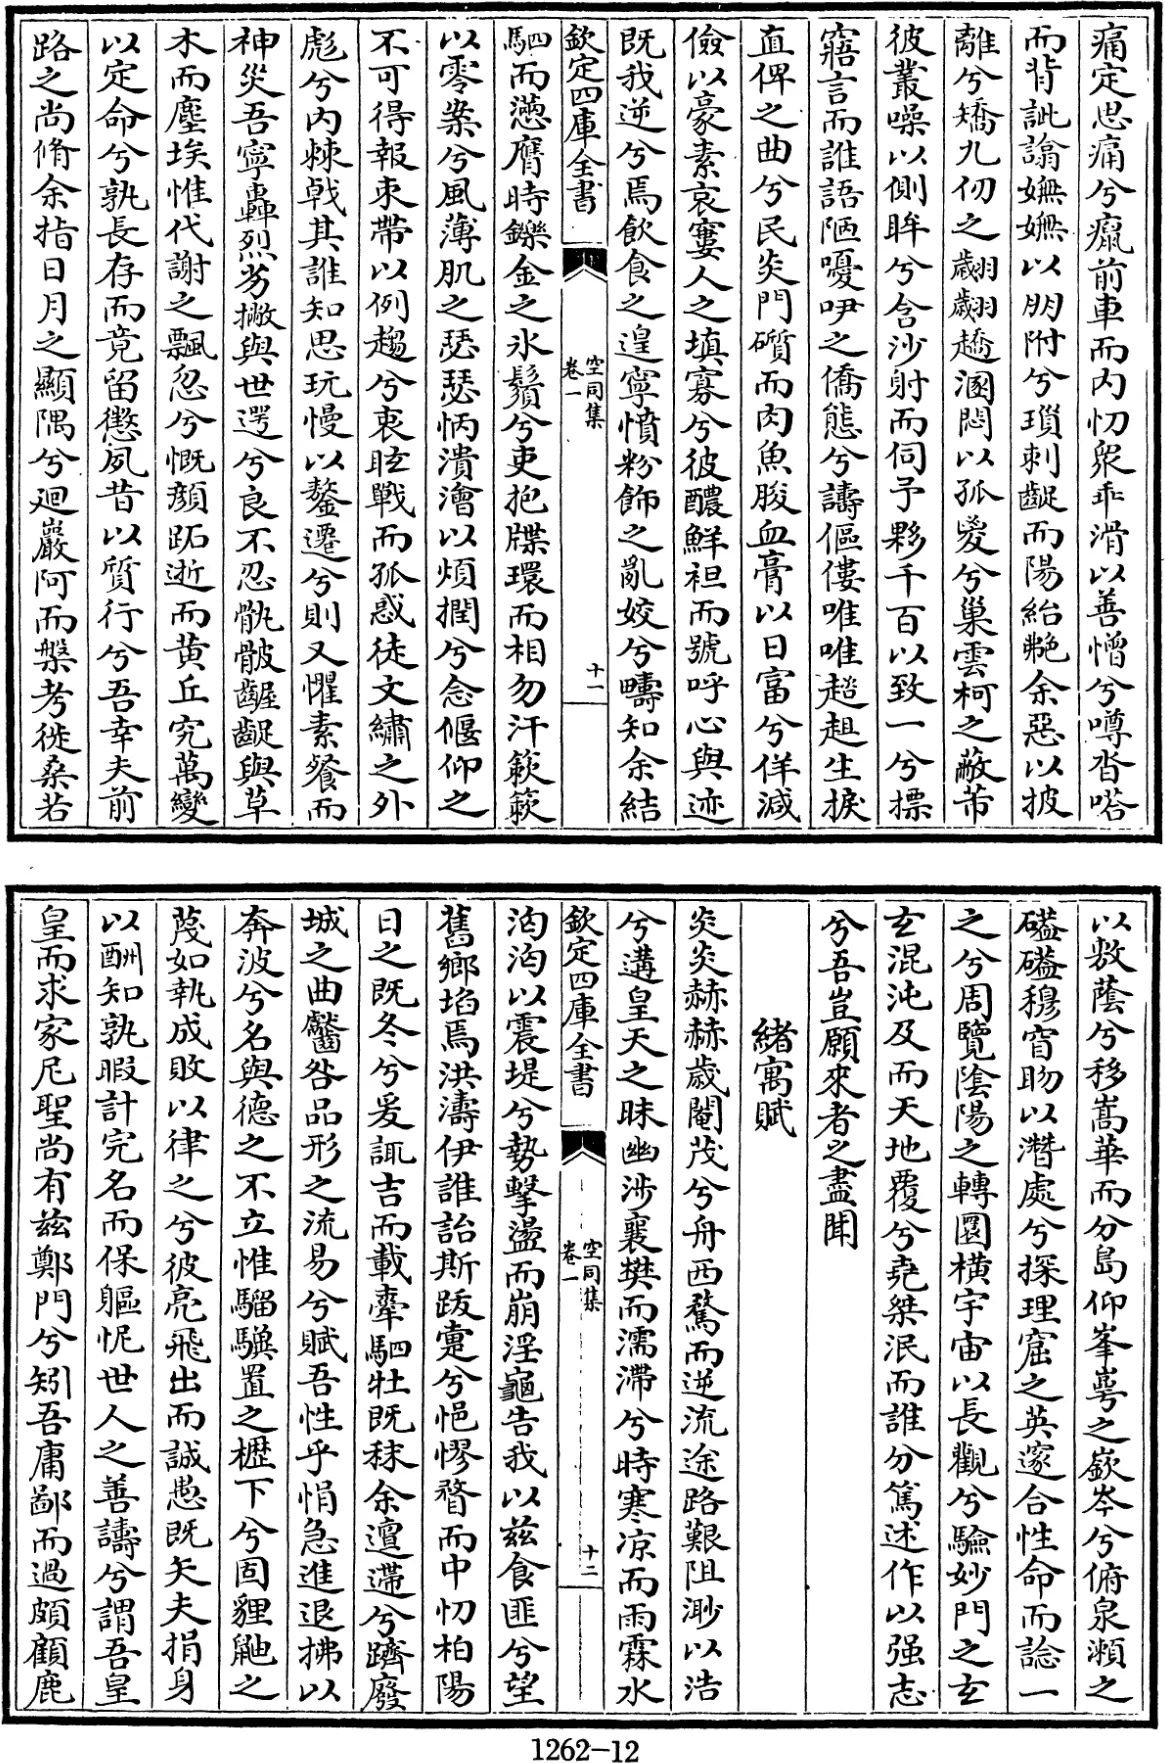 痛定思痛兮瘨前車而内忉衆乖滑以善憎兮噂沓㗳
而背訿謟嫵嫵以朋附兮瑣刺齪而陽紿艴余惡以披
離兮矯九仞之翽翽趫溷悶以孤爰兮巢雲柯之蔽芾
彼叢噪以側眸兮含沙射而伺予夥千百以致一兮摽
寤言而誰語陋嚘咿之僑態兮譸傴僂唯唯趑趄生捩
直俾之曲兮民炎門礩而肉魚朘血膏以日富兮佯減
儉以豪素哀窶人之填寡兮彼醲鮮袒而號呼心與迹
既我逆兮焉飲食之遑寧憤粉飾之亂姣兮疇知余結
欽定四庫全書
空同集
卷一
十一
駟而懣膺時鑠金之氷鬚兮吏抱牒環而相勿汗簌簌
以零桼兮風薄肌之瑟瑟怲潰澮以煩撋兮念偃仰之
不可得報朿帶以例趨兮衷眩戰而孤惑徒文繡之外
彪兮内棘戟其誰知思玩愒以鏊遷兮則又懼素餐而
神災吾寧轟烈劣撇與世逻兮良不忍骫骳齷齪與草
木而塵埃惟代謝之飄忽兮慨顔跖逝而黄丘究萬變
以定命兮孰長存而竟留懲夙昔以質行兮吾幸夫前
路之尚脩余指日月之顯隅兮廻巖阿而槃考徙桑若
以敷蔭兮移嵩華而分島仰峯崿之嶔岑兮俯泉瀨之
礚礚穆窅眇以潛處兮探理窟之英邃合性命而諗一
之兮周覽陰陽之轉圜橫宇宙以長觀兮驗妙門之玄
玄混沌及而天地覆兮堯桀泯而誰分篤述作以强志
兮吾豈願來者之盡聞
緒寓賦
炎炎赫赫歲閹茂兮舟西騖而逆流途路艱阻渺以浩
兮遘皇天之昧幽涉襄樊而濡滯兮時寒凉而雨霖水
欽定四庫全書
空同集
卷一
十二
洶洶以震堤兮勢擊盪而崩淫龜告我以兹食匪兮望
舊鄉焰焉洪濤伊誰詒斯跋疐兮悒憀瞀而中忉柏陽
日之既冬兮爰諏吉而載牽駟牡既秣余邅滯兮躋廢
城之曲齾咎品形之流易兮賦吾性乎悁急進退拂以
奔波兮名與德之不立惟騮驥置之櫪下兮固貍鼬之
蔑如執成敗以律之兮彼亮飛出而誠愚既矢夫捐身
以酬知孰暇計完名而保軀怩世人之善譸兮謂吾皇
皇而求家尼聖尚有兹鄭門兮矧吾庸鄙而過頗顧鹿
1262-12